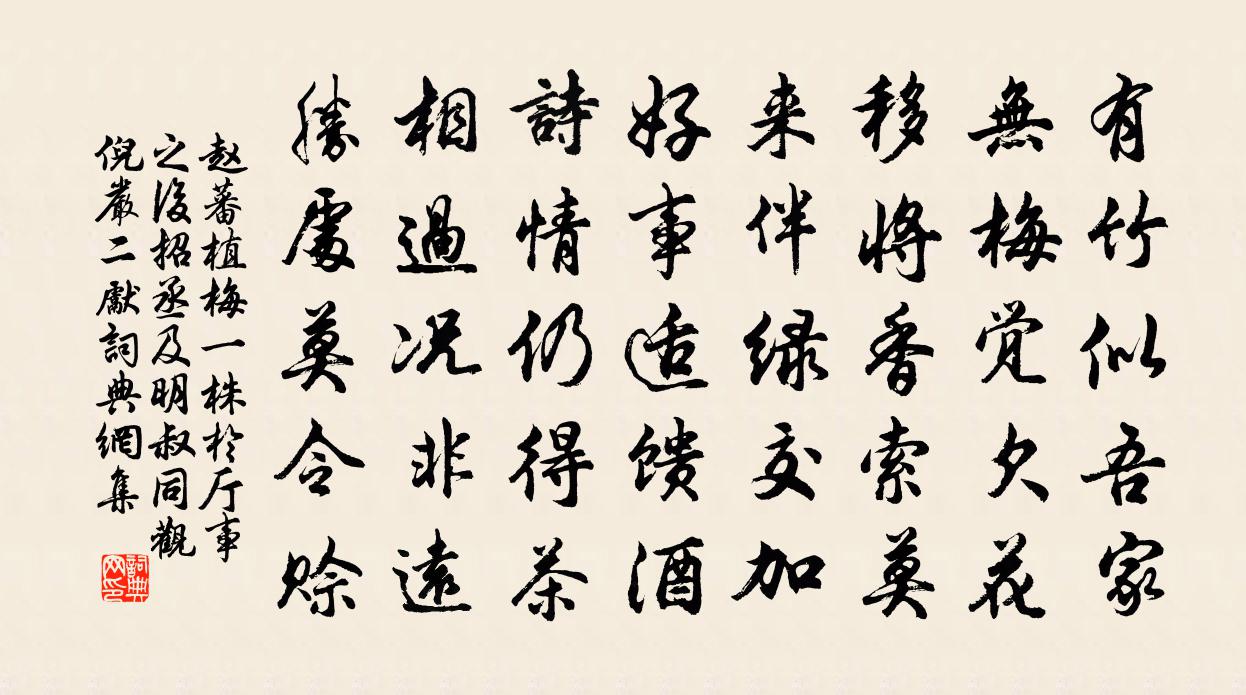 有竹似吾家
無梅覚欠花
移將香索莫
来伴緑交加
好事适馈酒
詩情仍得茶
相過况非遠
勝處莫令賒
赵蕃植梅一株於厅事
之後招丞及明叔同觀
倪嚴二獻詞典網集
詞典
网印